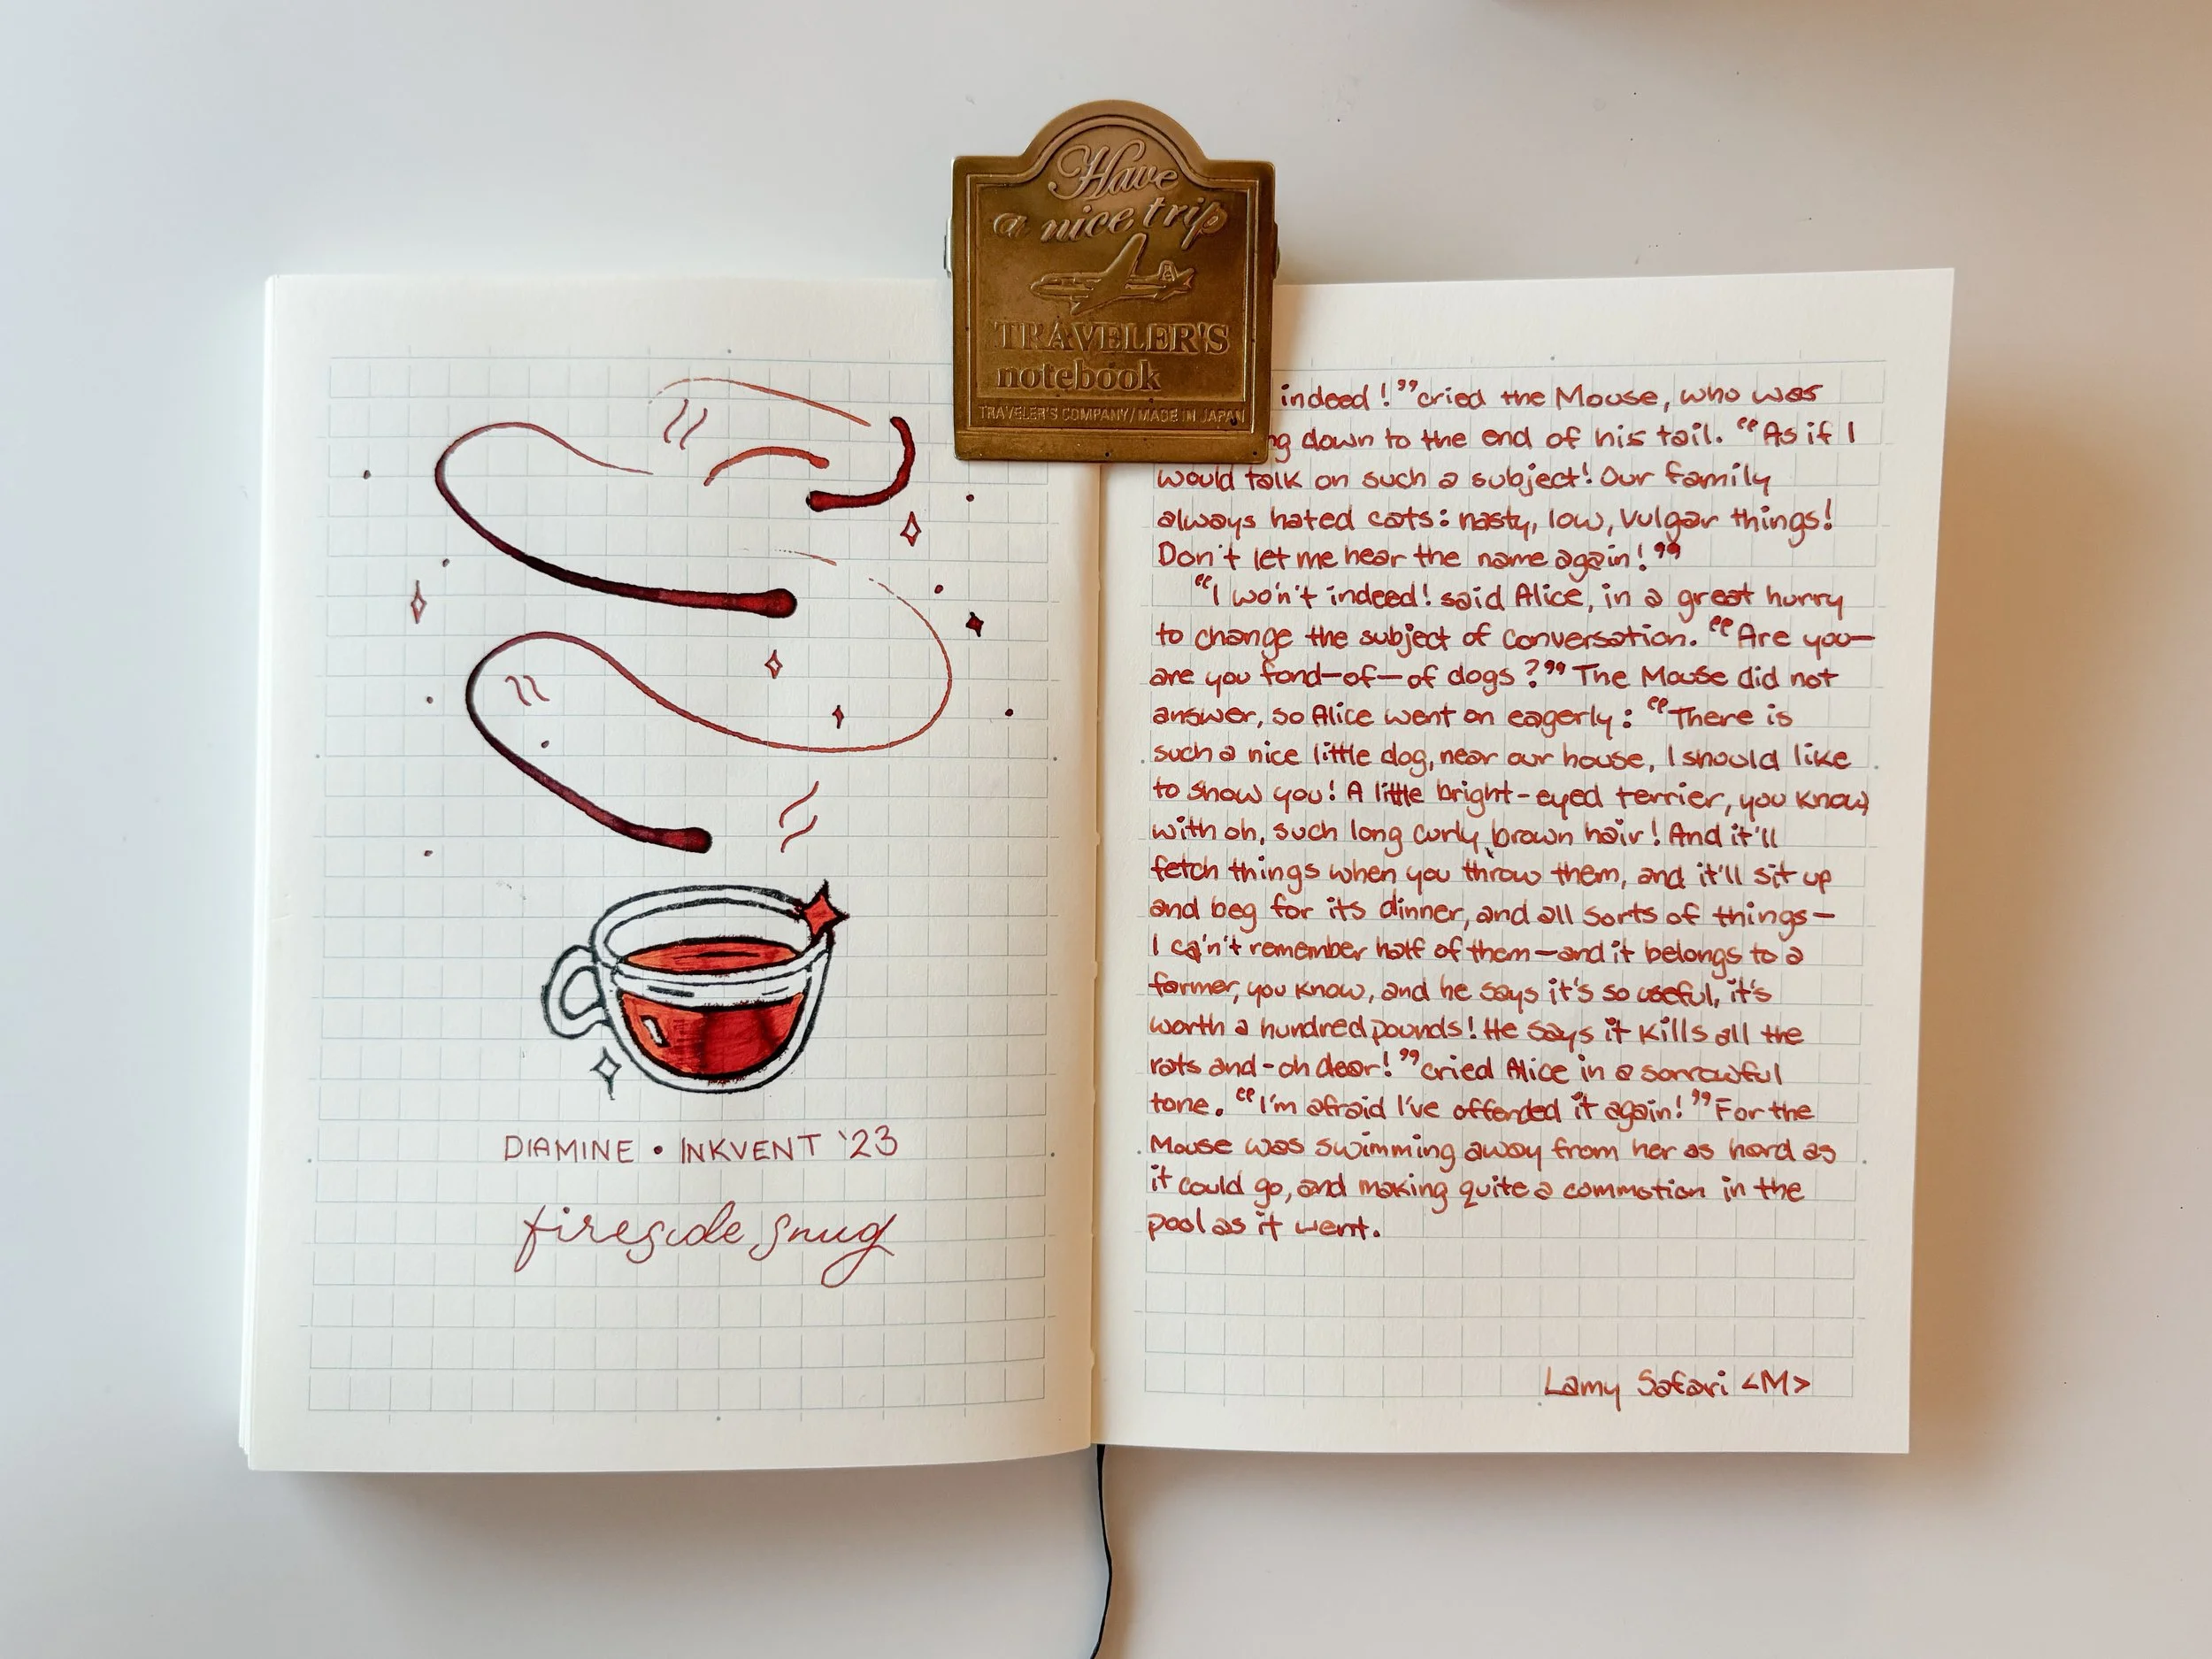 Have
a nice trip
TRAVELER'S
notebook
TRAVELER'S COMPANY/MADE IN JAPAN
DIAMINE • INKVENT '23
fireside snug
indeed!” cried the Mouse, who was
ng down to the end of his tail. “As if I
would talk on such a subject! Our family
always hated cats: nasty, low, vulgar things!
Don't let me hear the name again!”
“I won't indeed! said Alice, in a great hurry
to change the subject of conversation. “Are you—
are you fond—of—of dogs?” The Mouse did not
answer, so Alice went on eagerly: “There is
such a nice little dog, near our house, I should like
to show you! A little bright-eyed terrier, you know,
with oh, such long curly brown hair! And it'll
fetch things when you throw them, and it'll sit up
and beg for its dinner, and all sorts of things—
I ca'n't remember half of them—and it belongs to a
farmer, you know, and he says it's so useful, it's
worth a hundred pounds! He says it kills all the
rats and-oh dear!” cried Alice in a sorrowful
tone. “I'm afraid I've offended it again!” For the
Mouse was swimming away from her as hard as
it could go, and making quite a commotion in the
pool as it went.
Lamy Safari <M>